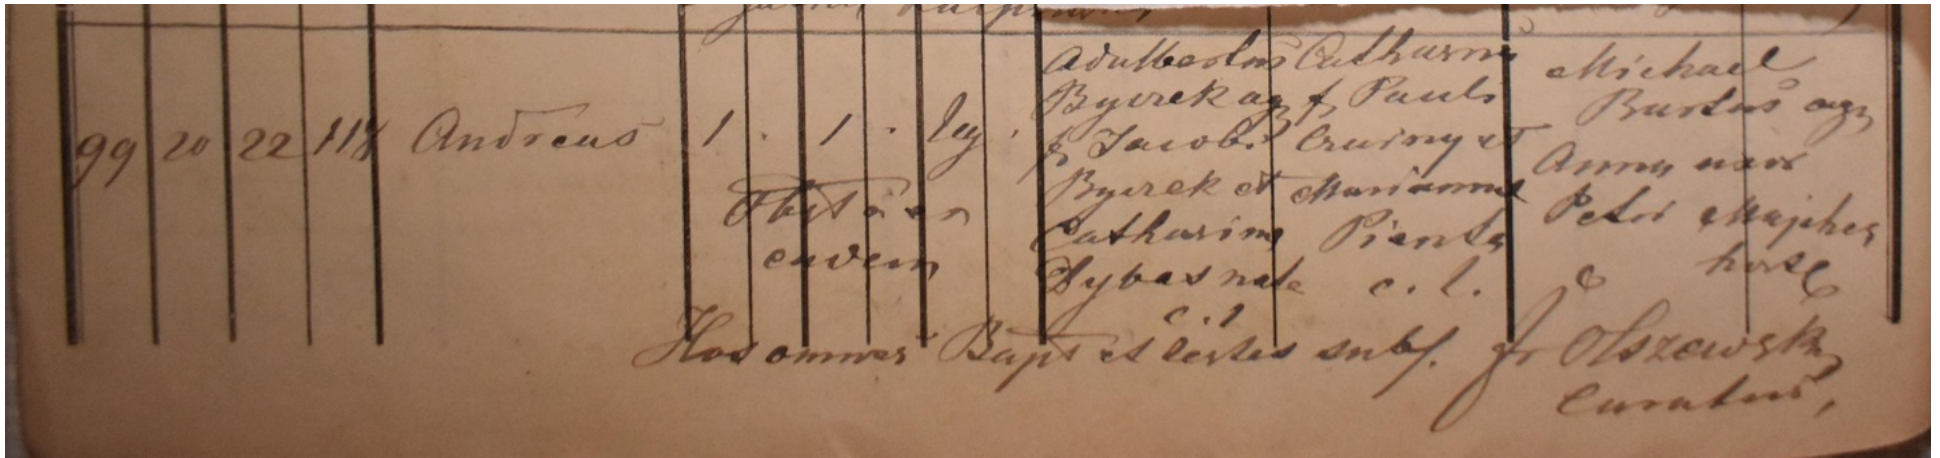 99 20 22 118 Andreas 1 . 1 . leg .
Obst: ea
eadem
Adalbertus
Bywrek agr
f. Jacobi
Bywrek et
Catharina
Dybas nata
c. l.
Catharina
f. Pauli
Czarny et
Marianna
Pienta
c. l.
Michael
Bartus agr
Anna uxor
Petri Majcher
Hos omnes Bapt et testes subs. Jr Olszewski
Curatus,